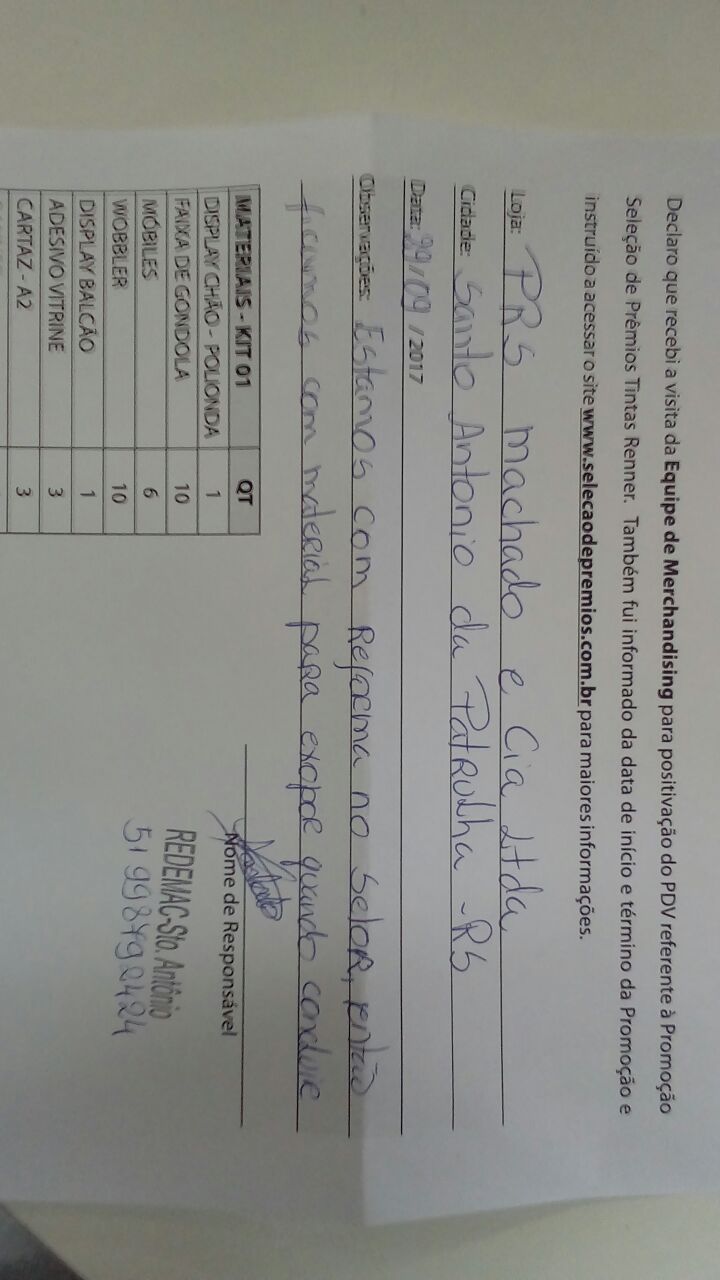 Declaro que recebi a visita da Equipe de Merchandising para positivação do PDV referente à Promoção
Seleção de Prêmios Tintas Renner. Também fui informado da data de início e término da Promoção e
instruído a acessar o site www.selecaodepremios.com.br para maiores informações.
Loja: PRS Machado e Cia Ltda
Cidade: Santo Antonio da Patrulha - RS
Data: 29/09/2017
Observações: Estamos com Reforma no Setor, então
ficamos com material para expor quando concluir
Nome de Responsável
REDEMAC-Sto. Antônio
51 998792424
MATERIAIS - KIT 01 QT
DISPLAY CHÃO - POLIONDA 1
FAIXA DE GONDOLA 10
MÓBILES 6
WOBBLER 10
DISPLAY BALCÃO 1
ADESIVO VITRINE 3
CARTAZ - A2 3